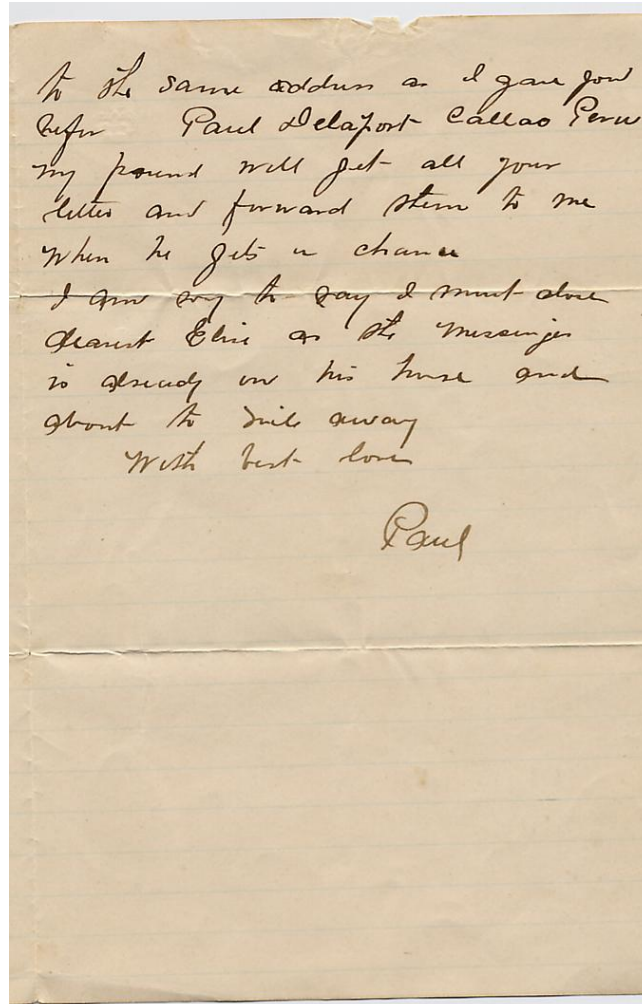 to the same address as I gave you
befor Paul Delaport Callao Peru
my friend will get all your
letter and forward them to me
when he gets a chance
I am sory to say I must close
dearest Elise as the messenger
is already on his horse and
about to ride away
With best love
Paul